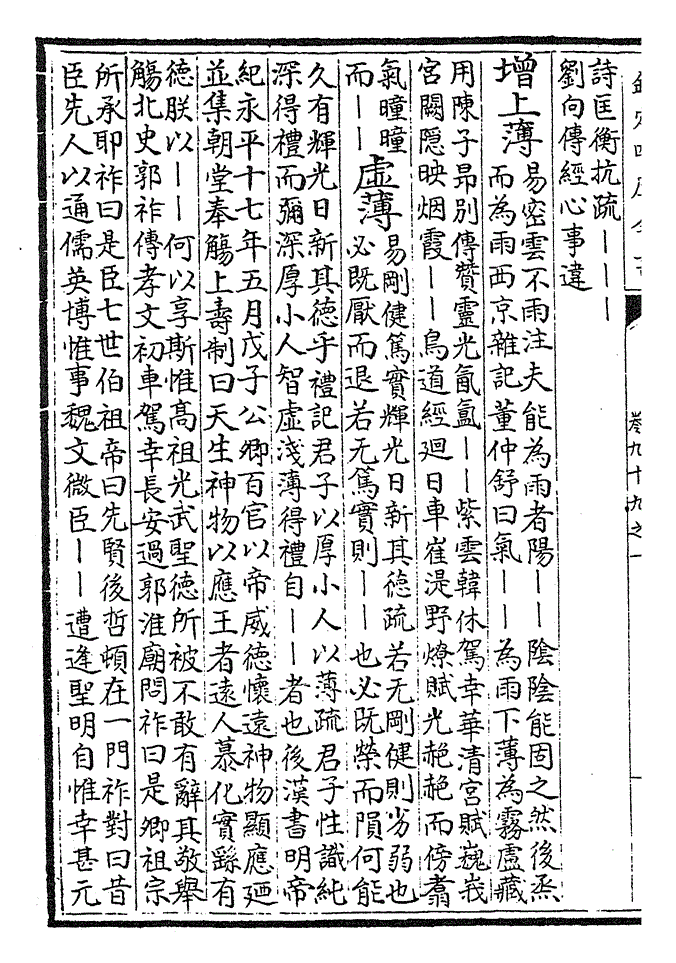 卷九十九之一
詩匡衡抗疏｜｜｜
劉向傳經心事違
增上薄
易密雲不雨注夫能為雨者陽｜｜隂隂能固之然後烝
而為雨西京雜記董仲舒曰氣｜｜為雨下薄為霧盧藏
用陳子昻別傳贊靈光氤氲｜｜紫雲韓休駕幸華清宮賦巍峩
宮闕隠映烟霞｜｜鳥道經廻日車崔湜野燎賦光赩赩而傍翥
氣曈曈
而｜｜
虛薄
易剛健篤實輝光日新其德疏若无剛健則劣弱也
必既厭而退若无篤實則｜｜也必既榮而隕何能
久有輝光日新其德乎禮記君子以厚小人以薄疏君子性識純
深得禮而彌深厚小人智虛淺薄得禮自｜｜者也後漢書明帝
紀永平十七年五月戊子公卿百官以帝威德懷遠神物顯應廼
並集朝堂奉觴上壽制曰天生神物以應王者遠人慕化實繇有
德朕以｜｜何以享斯惟髙祖光武聖德所被不敢有辭其敬舉
觴北史郭祚傳孝文初車駕幸長安過郭淮廟問祚曰是卿祖宗
所承耶祚曰是臣七世伯祖帝曰先賢後哲頓在一門祚對曰昔
臣先人以通儒英博惟事魏文微臣｜｜遭逢聖明自惟幸甚元